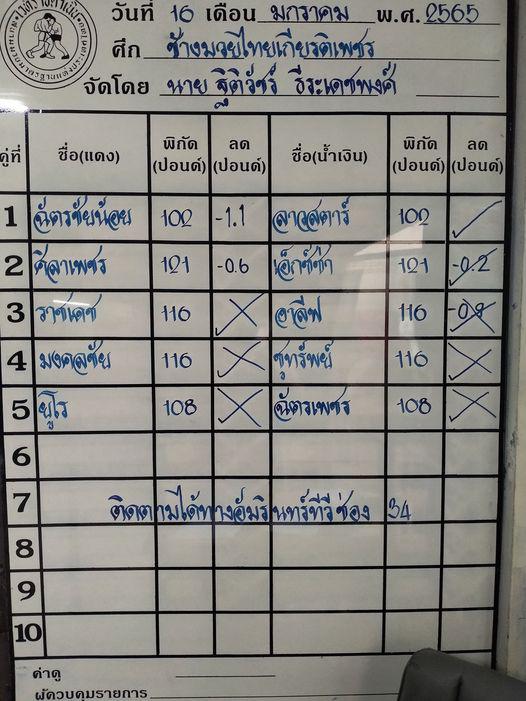 วันที่ 16 เดือน มกราคม พ.ศ. 2565
ศึก ช้างมวยไทยเกียรติเพชร
จัดโดย นาย ฐิติวัชร์ ธีระเดชพงศ์
คู่ที่ ชื่อ(แดง) พิกัด (ปอนด์) ลด (ปอนด์) ชื่อ(น้ำเงิน) พิกัด (ปอนด์) ลด (ปอนด์)
1 ฉัตรชัยน้อย 102 -1.1 ลาวสตาร์ 102
2 ศิลาเพชร 121 -0.6 เอ็กซ์ซ่า 121 -0.2
3 ราชเดช 116 อาลีฟ 116
4 มงคลชัย 116 ชูทรัพย์ 116
5 ยูโร 108 ฉัตรเพชร 108
6
7 ติดตามได้ทางอัมรินทร์ทีวี ช่อง 34
8
9
10
ค่าดู
ผู้ควบคุมรายการ